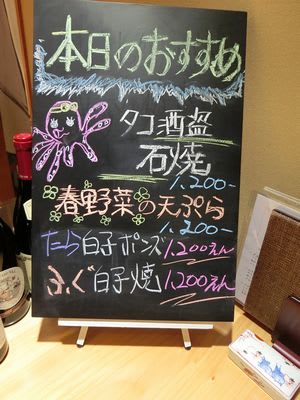 本日のおすすめ
タコ酒盗
石焼
1,200-
春野菜の天ぷら
1,200-
たら白子ポンズ 1,200えん
ふぐ白子焼 1,200えん